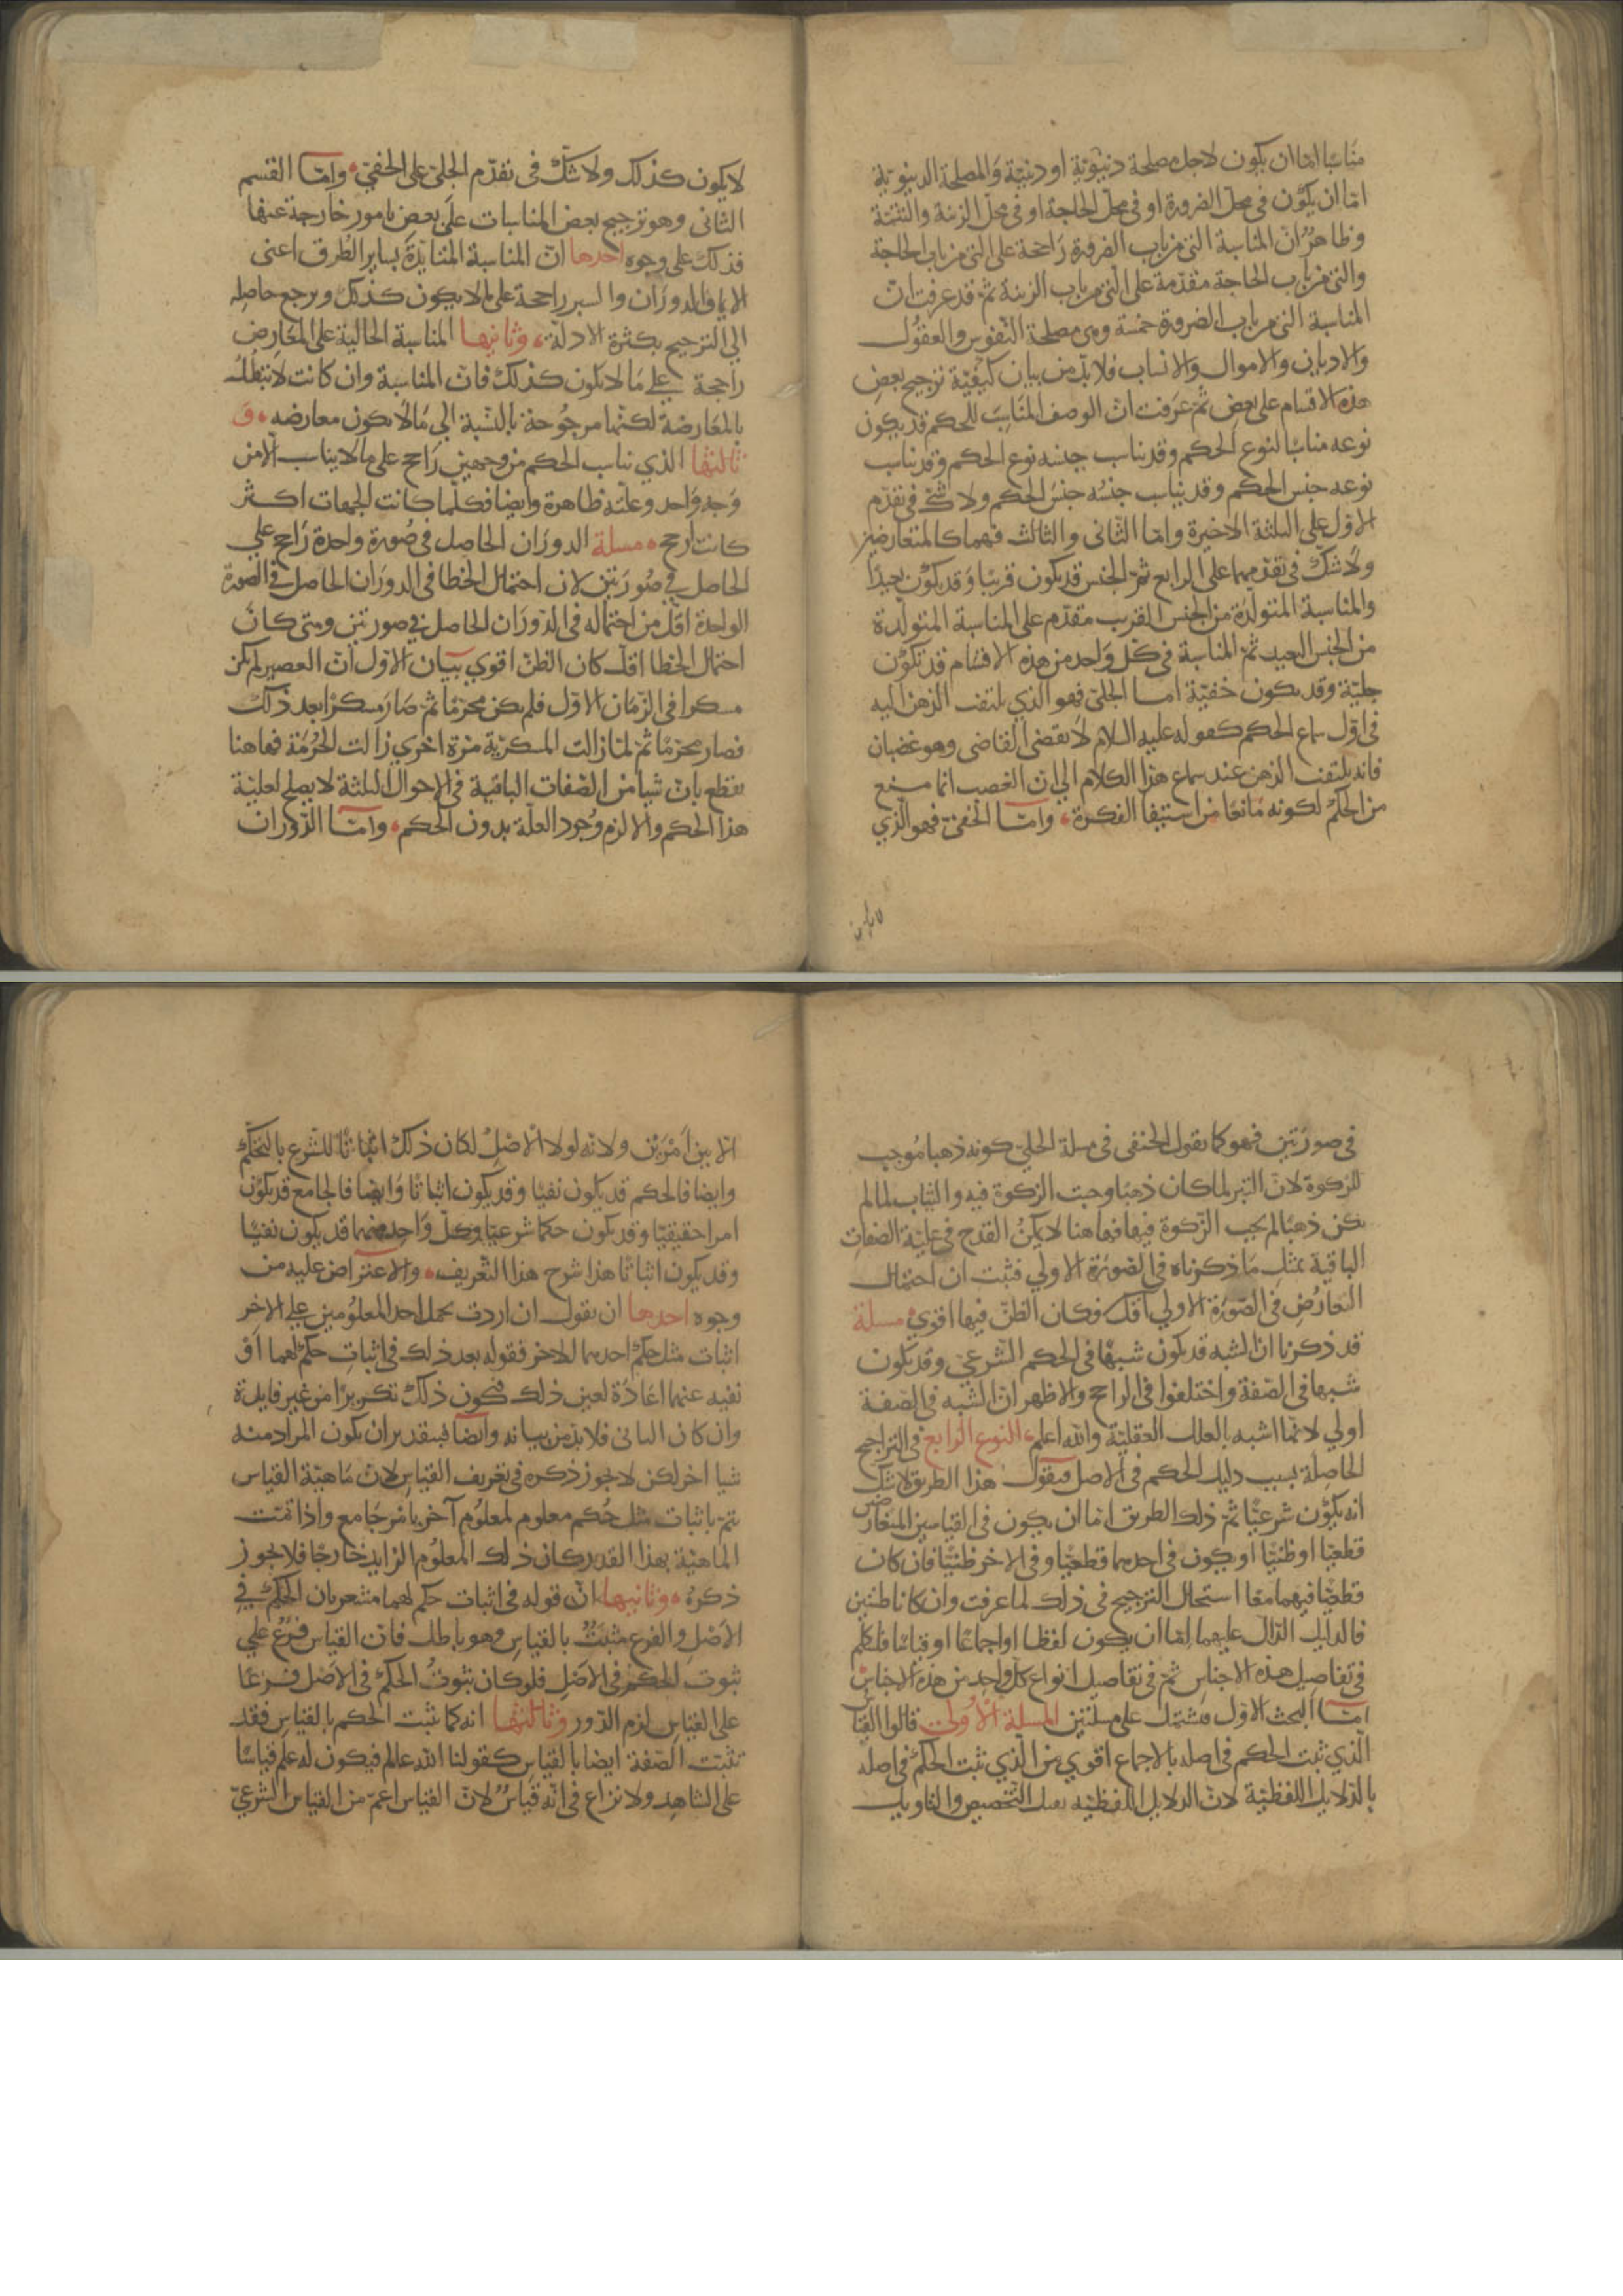 مناسبًا امّا ان يكون لاجل مصلحة دنيويّة او دينيّة والمصلحة الدنيويّة
امّا ان يكون في محلّ الضرورة او في محلّ الحاجة او في محلّ الزينة والتتمّة
وظاهرٌ انّ المناسبة التي من باب الضرورة راجحة على التي من باب الحاجة
والتي من باب الحاجة مقدّمة على التي من باب الزينة ثمّ قد عرفت انّ
المناسبة التي من باب الضرورة خمسة وهي مصلحة النّفوس والعقول
والاديان والاموال والانساب فلا بدّ من بيان كيفيّة ترجيح بعض
هذه الاقسام على بعض ثمّ عرفت انّ الوصف المناسب للحكم قد يكون
نوعه مناسبًا لنوع الحكم وقد يناسب جنسه نوع الحكم وقد يناسب
نوعه جنس الحكم وقد يناسب جنسُه جنس الحكم ولا شكّ في تقدّم
الاوّل على الثلثة الاخيرة وامّا الثاني والثالث فهما كالمتعارضين
ولا شكّ في تقدّمهما على الرابع ثمّ الجنس قد يكون قريبًا وقد يكون بعيدًا
والمناسبة المتولّدة من الجنس القريب مقدّم على المناسبة المتولّدة
من الجنس البعيد ثمّ المناسبة في كلّ واحد من هذه الاقسام قد تكون
جليّة وقد يكون خفيّة امـا الجليّ فهو الذي يلتفت الذهن اليه
في اوّل سماع الحكم كقوله عليه السلام لا يقضي القاضي وهو غضبان
فانه يلتفت الذهن عند سماع هذا الكلام الي انّ الغضب انما منع
من الحكم لكونه مانعًا من استيفا الفكرة وامّـا الخفيّ فهو الّذي
لا يكون كذلك ولا شكّ في تقدّم الجليّ على الخفيّ وامّـا القسم
الثاني وهو ترجيح بعض المناسبات على بعض بامور خارجة عنها
فذلك على وجوه احدها انّ المناسبة المتايّدة بساير الطرق اعني
الايما والدوران والسبر راجحة على ما لا يكون كذلك ويرجع حاصله
الي الترجيح بكثرة الادلّة وثانيهـا المناسبة الخالية على المعارض
راجحة على ما لا يكون كذلك فانّ المناسبة وان كانت لا تبطلُ
بالمعارضة لكنّها مرجوحة بالنسبة الي ما لا يكون معارضه و
ثالثها الذي يناسب الحكم من وجهين راجح على ما لا يناسب الّا من
وجه واحد وعلّته ظاهرة وايضا فكلّما كانت الجهات اكـثر
كانت ارجح مسلة الدوران الحاصل في صورة واحدة راجح علي
الحاصل في صورتين لان احتمال الخطا في الدوران الحاصل في الصورة
الواحدة اقلّ من احتماله في الدوران الحاصل في صورتين ومتى كان
احتمال الخطا اقلّ كان الظنّ اقوي بيان الاوّل انّ العصير لم يكن
مسكرا في الزمان الاوّل فلم يكن محرّما ثمّ صار مسكرًا بعد ذلك
فصار محرّما ثمّ لمّا زالت المسكريّة مرّة اخري زالت الحرمة فهاهنا
يقطع بانّ شيا من الصفات الباقية في الاحوال الثلثة لا يصلح لعليّة
هذا الحكم والا لزم وجود العلّة بدون الحكم وامّـا الدّوران
في صورتين فهو كما يقول الحنفي في مسلة الحليّ كونه ذهبا موجب
للزكوة لانّ التبر لما كان ذهبًا وجبت الزكوة فيه والثياب لما لم
يكن ذهبًا لم يجب الزّكوة فيها فهاهنا لا يمكنُ القدح في عليّة الصفات
الباقية بمثل ما ذكرناه في الصورة الاولي فثبت ان احتمال
التعارض في الصّورة الاولي اقلّ فكان الظنّ فيها اقوي مسلة
قد ذكرنا انّ الشبه قد يكون شبهًا في الحكم الشرعيّ وقد يكون
شبها في الصّفة واختلفوا في الراجح والاظهر انّ الشبه في الصفة
اولي لانّها اشبه بالعلل العقليّة والله اعلم النوع الرابع في التراجيح
الحاصلة بسبب دليل الحكم في الاصل فيقول هذا الطريق لا شكّ
انه يكون شرعيًّا ثمّ ذلك الطريق امّا ان يكون في القياسين المتعارضين
قطعيّا او ظنيّا او يكون في احدهما قطعيّا وفي الاخر ظنيًّا فان كان
قطعيّا فيهما معًا استحال الترجيح في ذلك لما عرفت وان كانا ظنيّين
فالدليل الدّالّ عليهما امّا ان يكون لفظا او اجماعًا او قياسًا فلنتكلم
في تفاصيل هذه الاجناس ثمّ في تفاصيل انواع كلّ واحد من هذه الاجناس
امّـا البحث الاوّل فمشتمل على مسلتين المسلة الاولى قالوا القياس
الّذي ثبت الحكم في اصله بالاجماع اقوي من الّذي ثبت الحكم في اصله
بالدّلايل اللفظيّة لانّ الدلايل اللفظيّه يقبل التّخصيص والتاويل
الّا بين امرين ولانّه لولا الاصل لكان ذلك اثباتًا للشّرع بالتحكّم
وايضا فالحكم قد يكون نفيًا وقد يكون اثباتًا وايضا فالجامع قد يكون
امرا حقيقيّا وقد يكون حكما شرعيّا وكلّ واحد منهما قد يكون نفيًا
وقد يكون اثباتًا هذا شرح هذا التّعريف والاعتراض عليه من
وجوه احدهـا ان يقول ان اردت بحمل احد المعلومين علي الاخر
اثبات مثل حكم احدهما للاخر فقوله بعد ذلك في اثبات حكم لهما او
نفيه عنهما اعادة لعين ذلك فيكون ذلك تكريرًا من غير فايدة
وان كان الثاني فلا بدّ من بيانه وايضا فبتقدير ان يكون المراد منه
شيا اخر لكن لا يجوز ذكره في تعريف القياس لانّ ماهيّة القياس
يتمّ باثبات مثل حكم معلوم لمعلوم آخر بامر جامع واذا تمّت
الماهيّة بهذا القدر كان ذلك المعلوم الزايد خارجًا فلا يجوز
ذكرهُ وثانيهـا انّ قوله في اثبات حكم لهما مشعر بان الحكم في
الاصل والفرع مثبَتٌ بالقياس وهو باطل فانّ القياس فرعٌ علي
ثبوت الحكم في الاصل فلو كان ثبوتُ الحكم في الاصل فـرعًا
على القياس لزم الدّور وثالثهـا انه كما يثبت الحكم بالقياس فقد
تثبت الصّفة ايضا بالقياس كقولنا الله عالم فيكون له علم قياسًا
على الشاهد ولا نزاع في انّه قياسٌ لانّ القياس اعمّ من القياس الشرعيّ